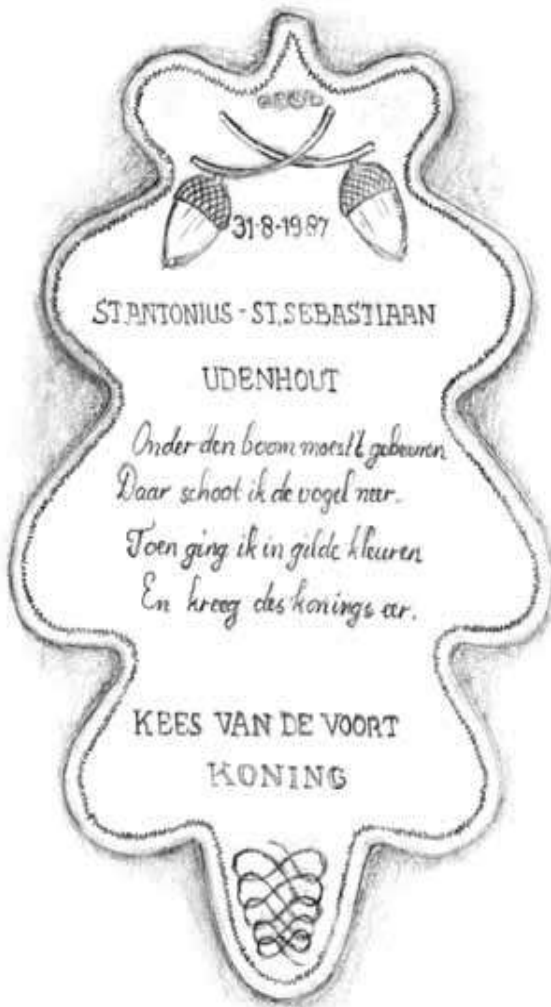 31-8-1987
ST.ANTONIUS - ST.SEBASTIAAN
UDENHOUT
Onder den boom moest't gebeuren
Daar schoot ik de vogel neer.
Toen ging ik in gilde kleuren
En kreeg des konings eer.
KEES VAN DE VOORT
KONING